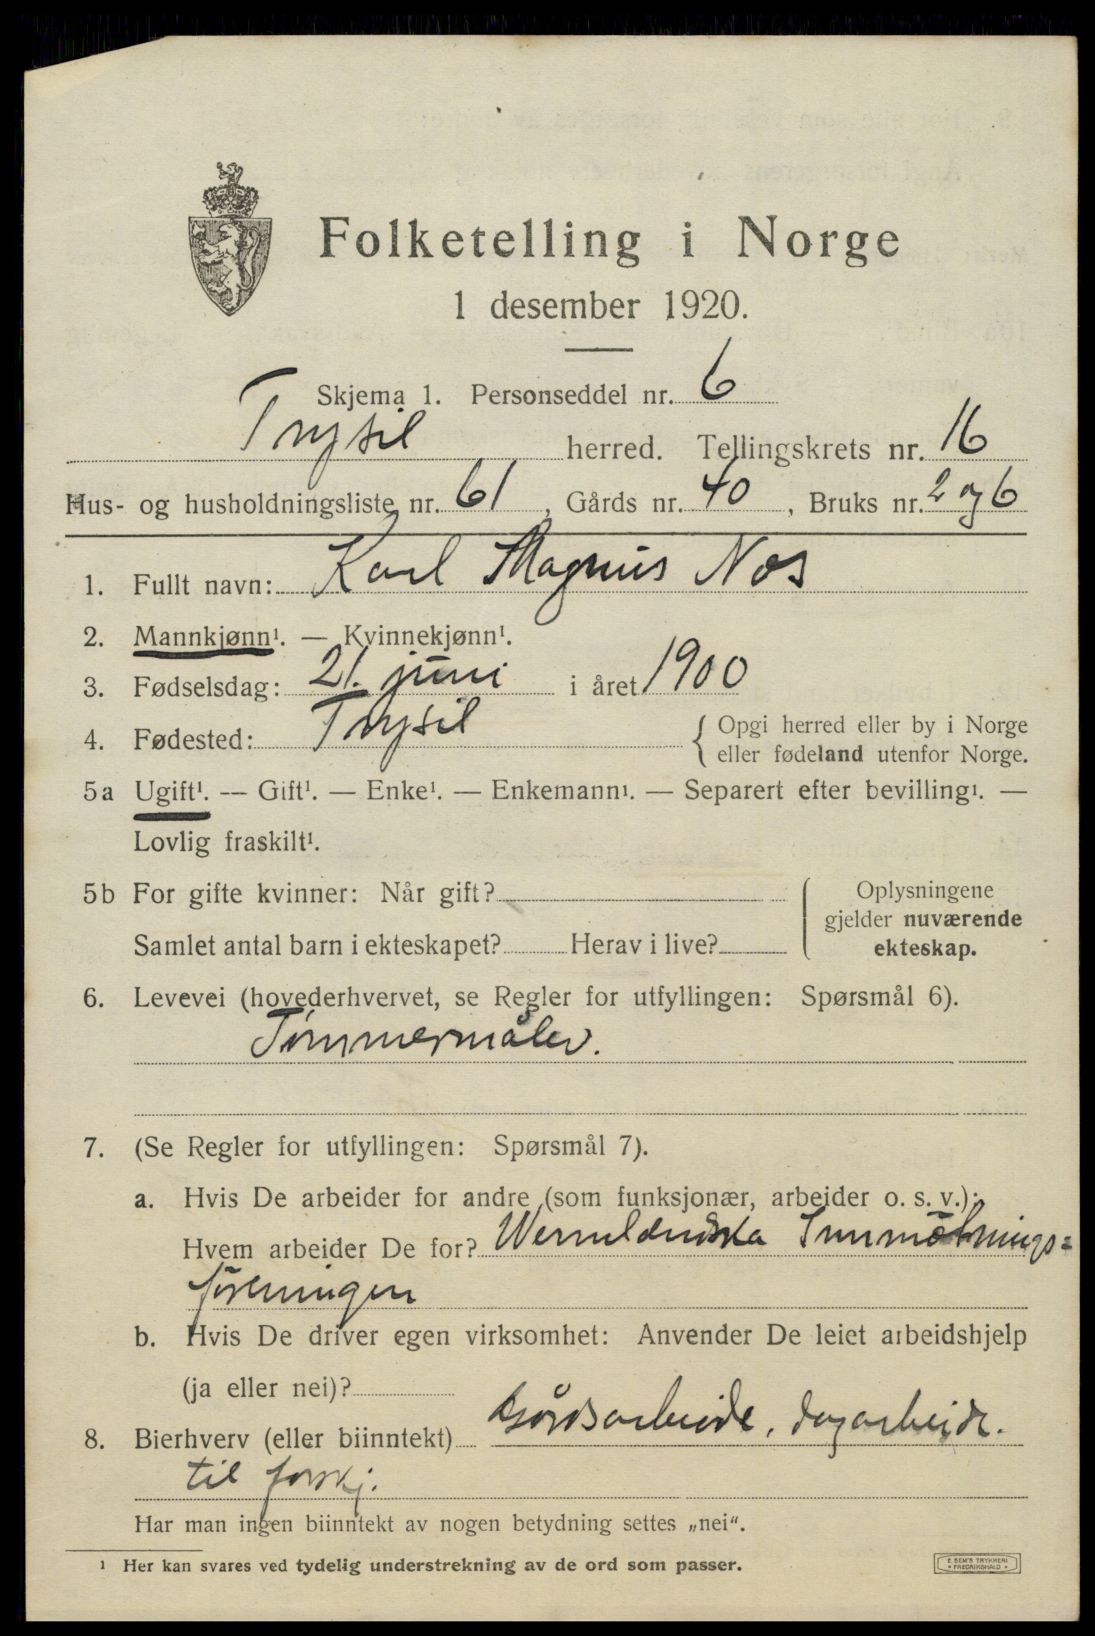 Folketelling i Norge
1 desember 1920.
Skjema 1. Personseddel nr. 6
Trysil herred. Tellingskrets nr. 16
Hus- og husholdningsliste nr. 61, Gårds nr. 40, Bruks nr. 2 og 6
1. Fullt navn: Karl Magnus Nos
2. Mannkjønn¹. — Kvinnekjønn¹.
3. Fødselsdag: 21. juni i året 1900
4. Fødested: Trysil { Opgi herred eller by i Norge
eller fødeland utenfor Norge.
5a Ugift¹. — Gift¹. — Enke¹. — Enkemann¹. — Separert efter bevilling¹. —
Lovlig fraskilt¹.
5b For gifte kvinner: Når gift?
Samlet antal barn i ekteskapet? Herav i live?
Oplysningene
gjelder nuværende
ekteskap.
6. Levevei (hovederhvervet, se Regler for utfyllingen: Spørsmål 6).
Tømmermåler.
7. (Se Regler for utfyllingen: Spørsmål 7).
a. Hvis De arbeider for andre (som funksjonær, arbeider o. s. v.):
Hvem arbeider De for?
föreningen
b. Hvis De driver egen virksomhet: Anvender De leiet arbeidshjelp
(ja eller nei)?
8. Bierhverv (eller biinntekt) Gårdsarbeide, dagarbeide.
til forskj.
Har man ingen biinntekt av nogen betydning settes „nei“.
¹ Her kan svares ved tydelig understrekning av de ord som passer.
E. SEM'S TRYKKERI
• FREDRIKSHALD •